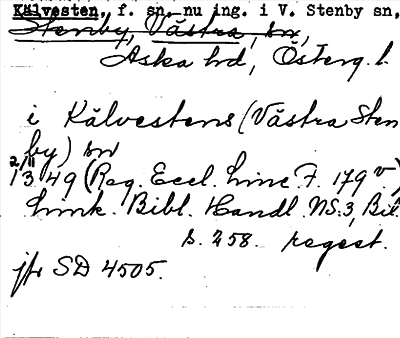 Kälvesten, f. sn, nu ing. i V. Stenby sn,
Stenby, Västra, sn,
Aska hd, Österg. l.
i Kälvestens (Västra Sten
by) sn
2/11
1349 (Reg. Eccl. Linc. F. 179 v)
Link. Bibl. Handl. NS. 3, Bil.
s. 258. regest.
jfr SD 4505.